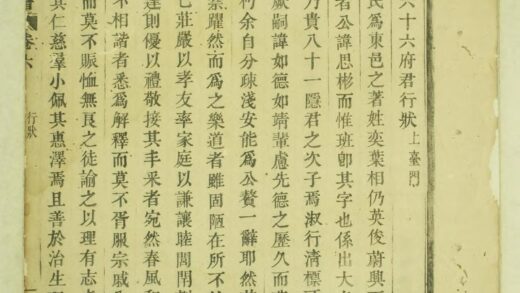 六十六府君行狀 上臺門
氏爲東邑之著姓奕葉相仍英俊蔚興
者公諱思彬而惟班卽其字也係出大
乃貴八十一隱君之次子焉淑行清標
厥嗣諱如德如靖輩慮先德之歷久而
何余自分疎淺安能爲公贅一辭耶然
禁躍然而爲之樂道者雖固陋在所不
七莊嚴以孝友率家庭以謙讓睦閭閈
達則優以禮敬接其丰采者宛然春風
不相諧者悉爲解釋而莫不胥服宗戚
而莫不賑恤無良之徒諭之以理有志
其仁慈羣小佩其惠澤焉且善於治生
卷六 行狀